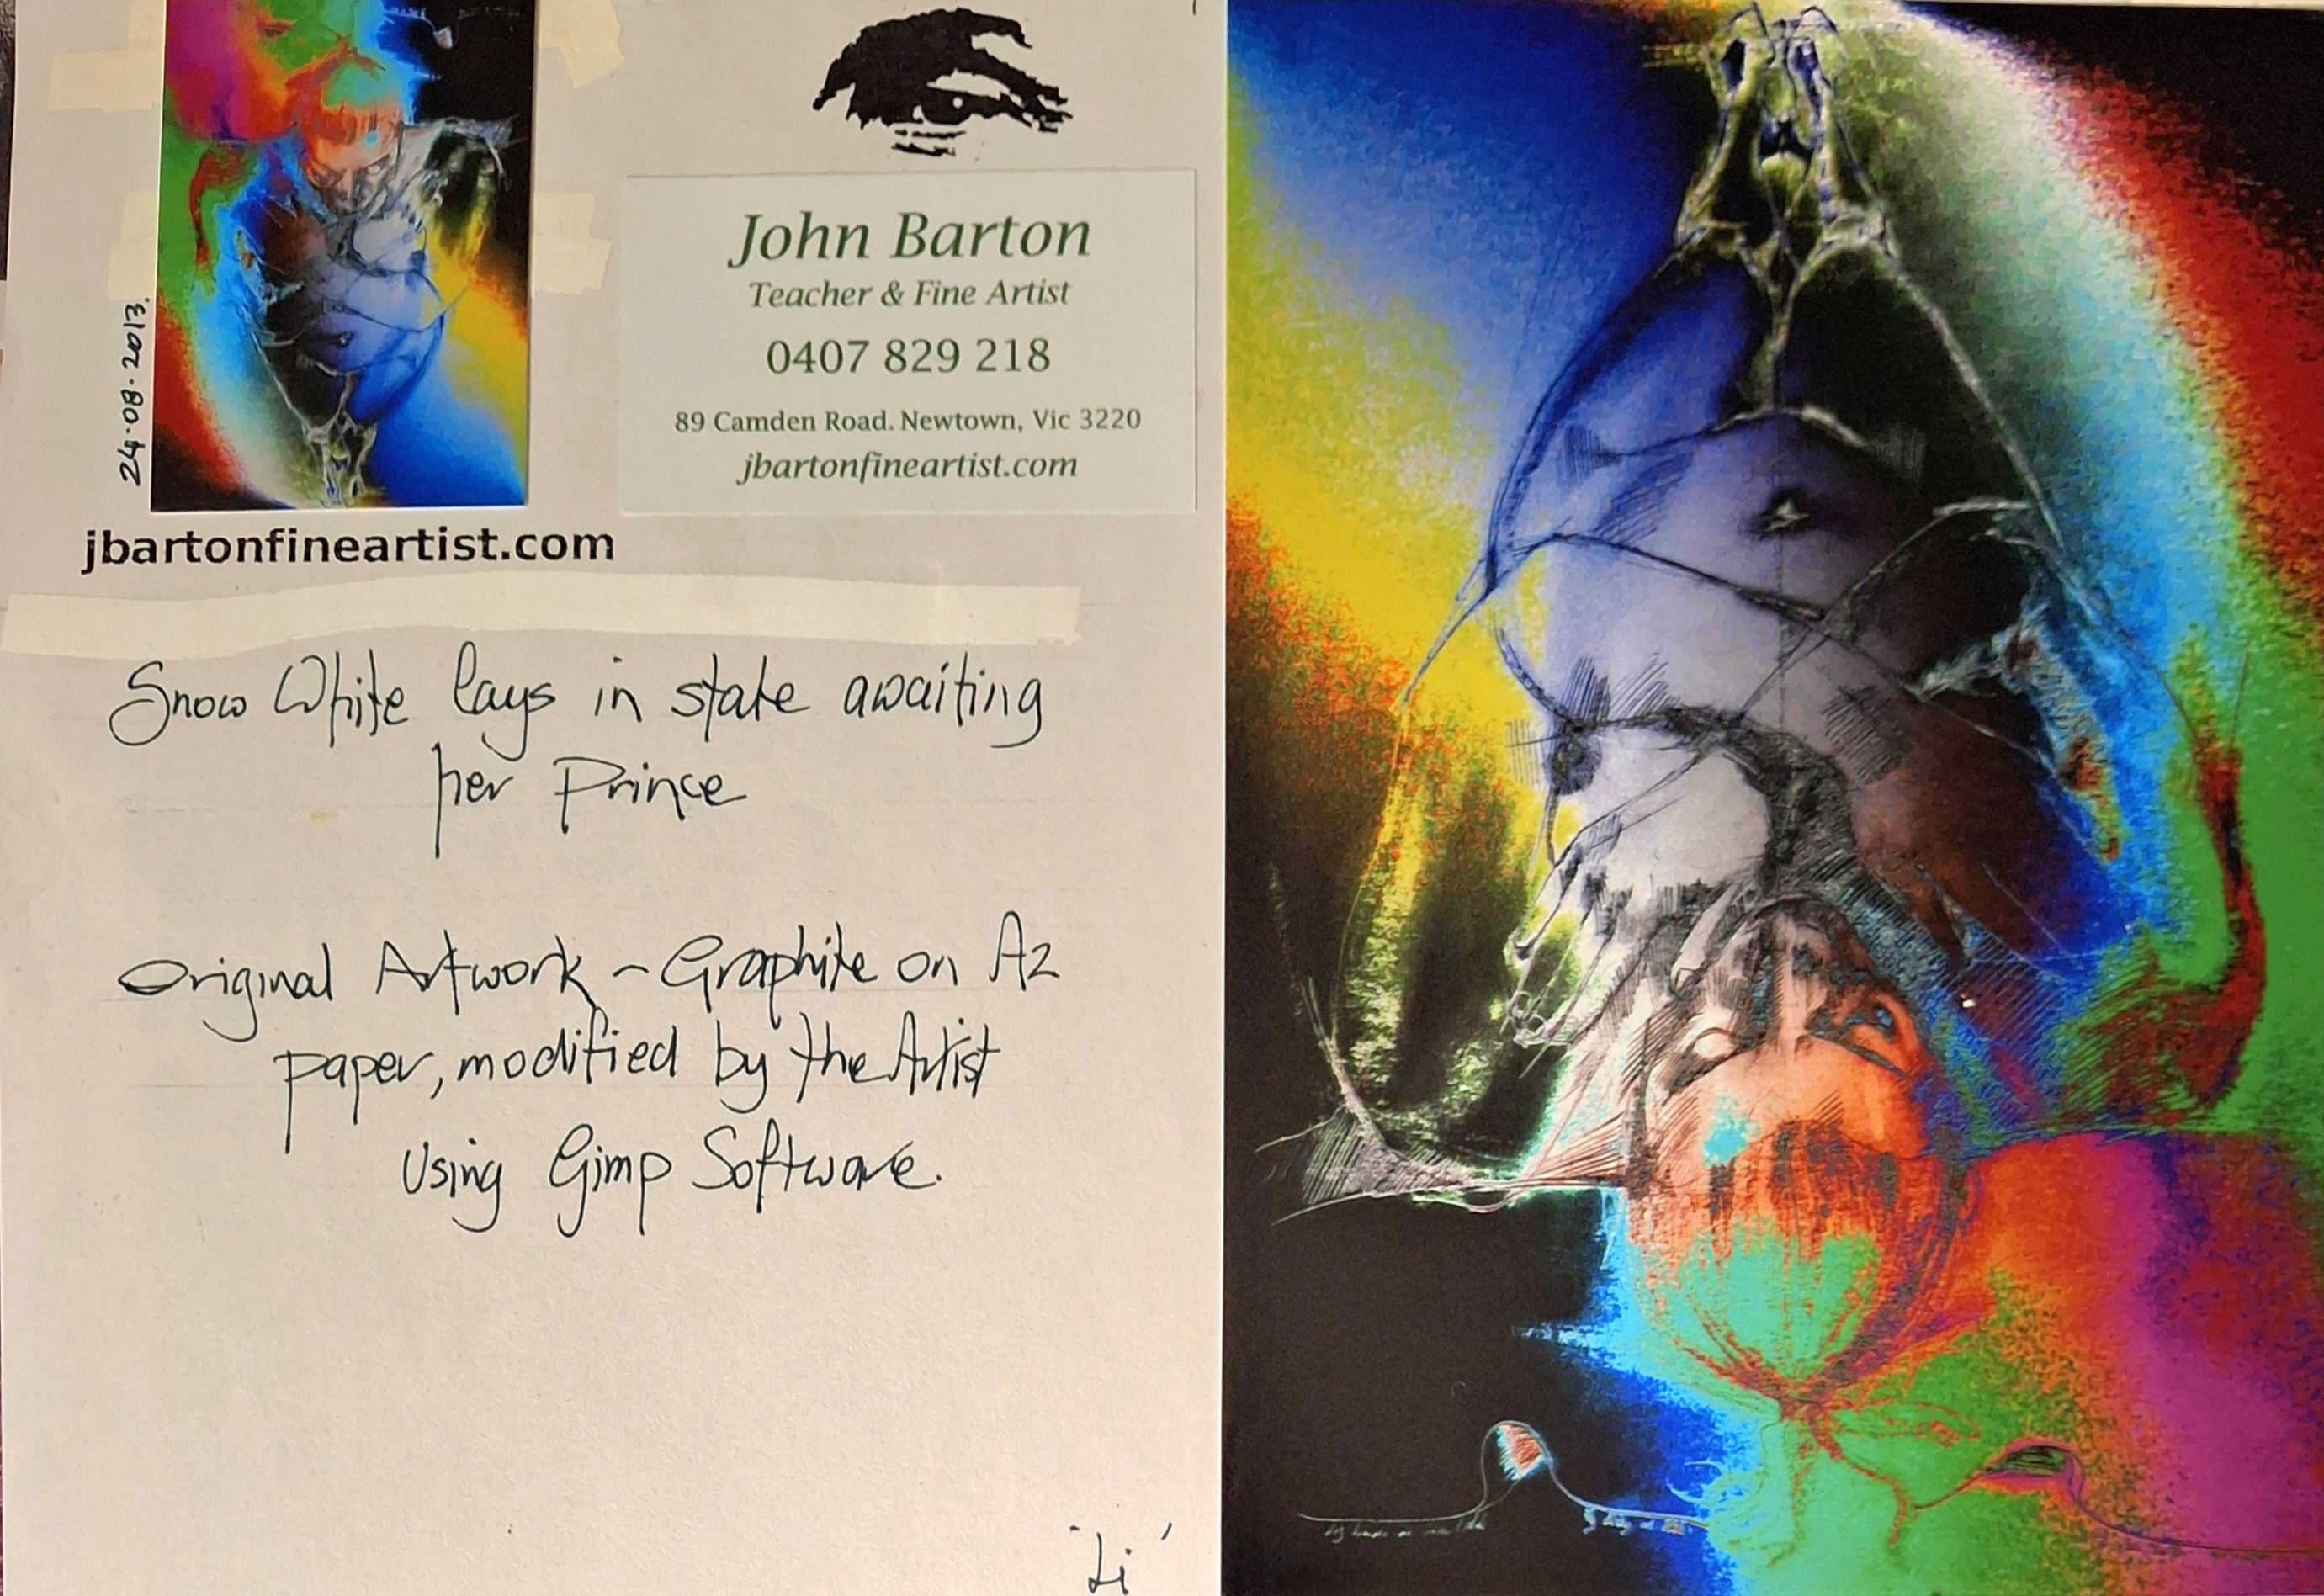 24.08.2013.
John Barton
Teacher & Fine Artist
0407 829 218
89 Camden Road. Newtown, Vic 3220
jbartonfineartist.com
jbartonfineartist.com
Snow White lays in state awaiting
her Prince
Original Artwork ~ Graphite on A2
paper, modified by the Artist
using Gimp Software.
'Li'